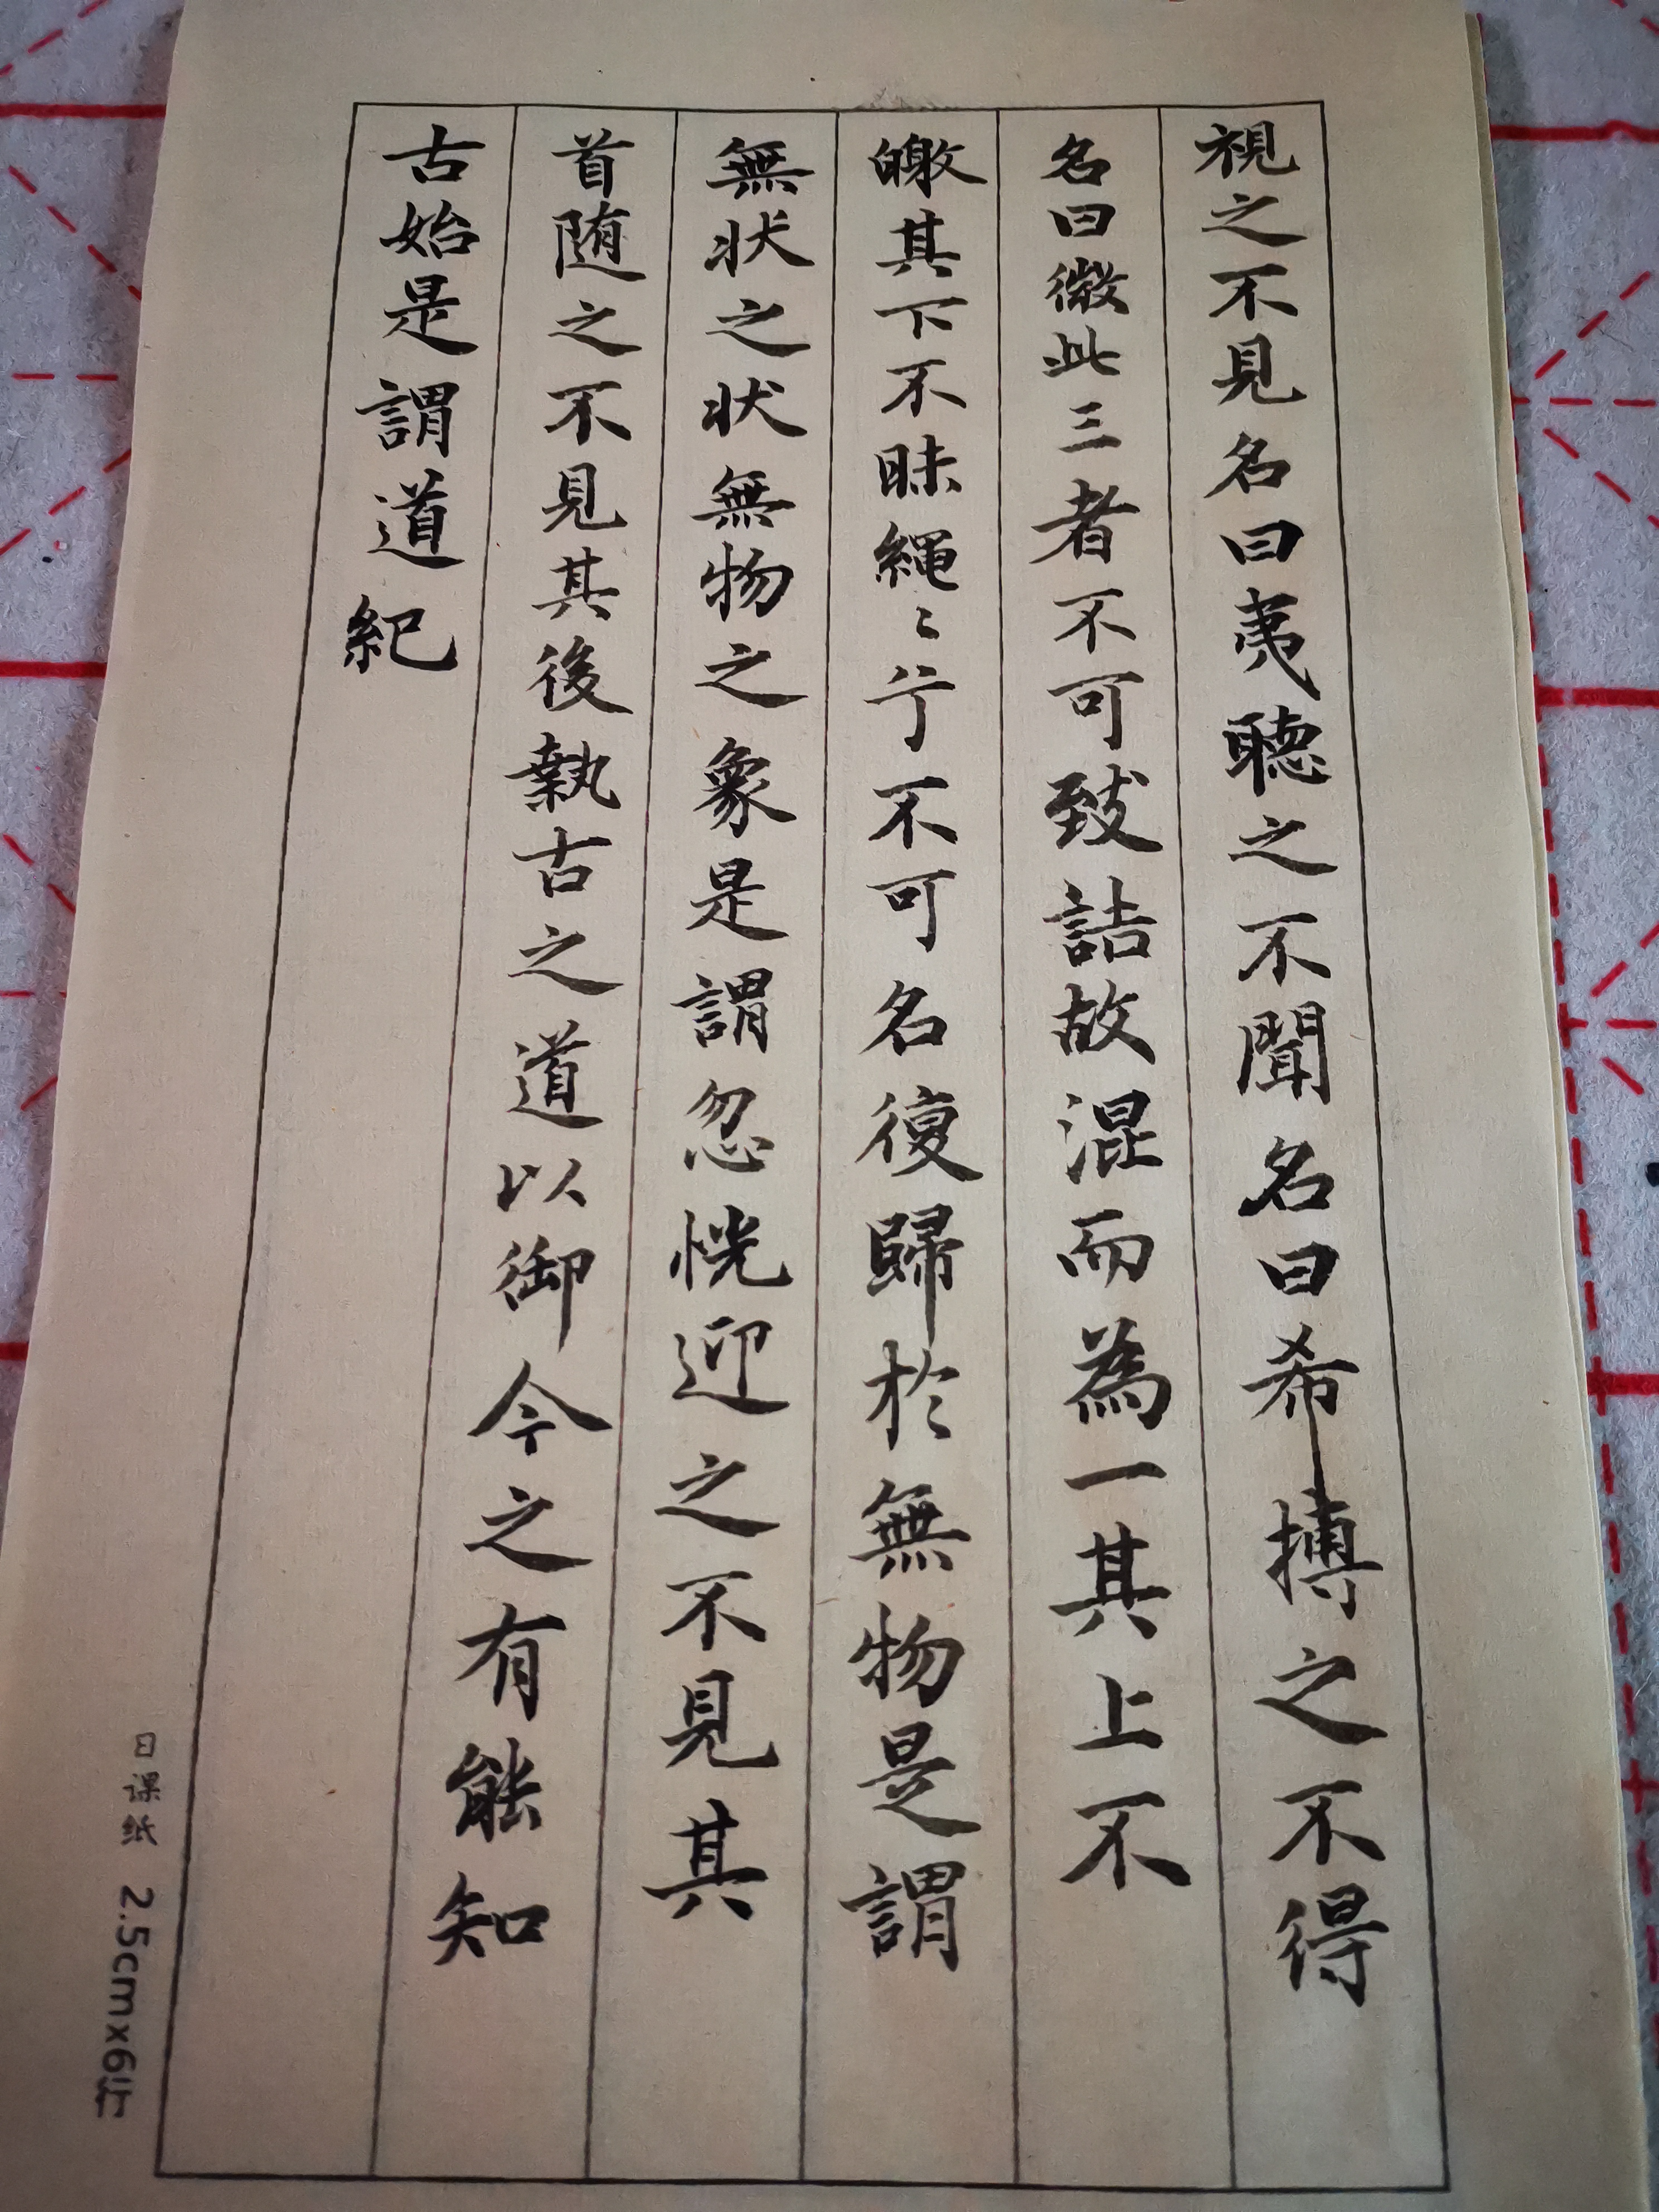 視之不見名曰夷聽之不聞名曰希搏之不得
名曰微此三者不可致詰故混而為一其上不
皦其下不昧繩〻兮不可名復歸於無物是謂
無狀之狀無物之象是謂忽恍迎之不見其
首随之不見其後執古之道以御今之有能知
古始是謂道紀
日课纸 2.5cmx6行